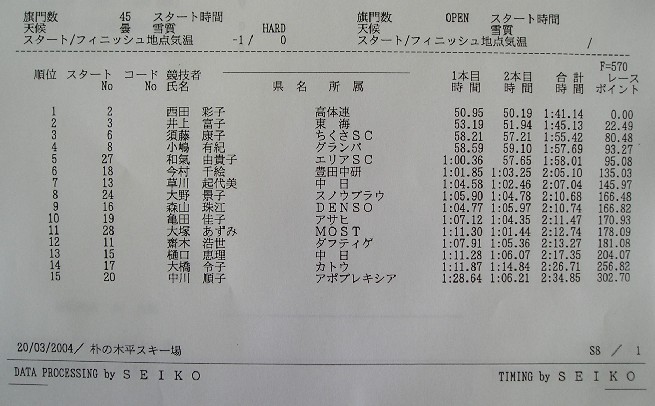 旗門数 45 スタート時間 旗門数 OPEN スタート時間
天候 曇 雪質 HARD 天候 雪質
スタート/フィニッシュ地点気温 -1 / 0 スタート/フィニッシュ地点気温 /
F=570
順位 スタート コード 競技者 1本目 2本目 合計 レース
No No 氏名 県名 所属 時間 時間 時間 ポイント
1 2 西田 彩子 高体連 50.95 50.19 1:41.14 0.00
2 3 井上 富子 東海 53.19 51.94 1:45.13 22.49
3 6 須藤 康子 ちくさSC 58.21 57.21 1:55.42 80.48
4 8 小嶋 有紀 グランパ 58.59 59.10 1:57.69 93.27
5 27 和氣 由貴子 エリアSC 1:00.36 57.65 1:58.01 95.08
6 18 今村 千絵 豊田中研 1:01.85 1:03.25 2:05.10 135.03
7 13 草川 起代美 中日 1:04.58 1:02.46 2:07.04 145.97
8 24 大野 景子 スノウブラウ 1:05.90 1:04.78 2:10.68 166.48
9 16 森山 珠江 DENSO 1:04.77 1:05.97 2:10.74 166.82
10 19 亀田 佳子 アサヒ 1:07.12 1:04.35 2:11.47 170.93
11 28 大塚 あずみ MOST 1:11.30 1:01.44 2:12.74 178.09
12 11 齋木 浩世 ダフティゲ 1:07.91 1:05.36 2:13.27 181.08
13 15 樋口 恵理 中日 1:11.28 1:06.07 2:17.35 204.07
14 17 大橋 令子 カトウ 1:11.87 1:14.84 2:26.71 256.82
15 20 中川 順子 アポプレキシア 1:28.64 1:06.21 2:34.85 302.70
20/03/2004/ 朴の木平スキー場 S8 / 1
DATA PROCESSING by SEIKO TIMING by SEIKO